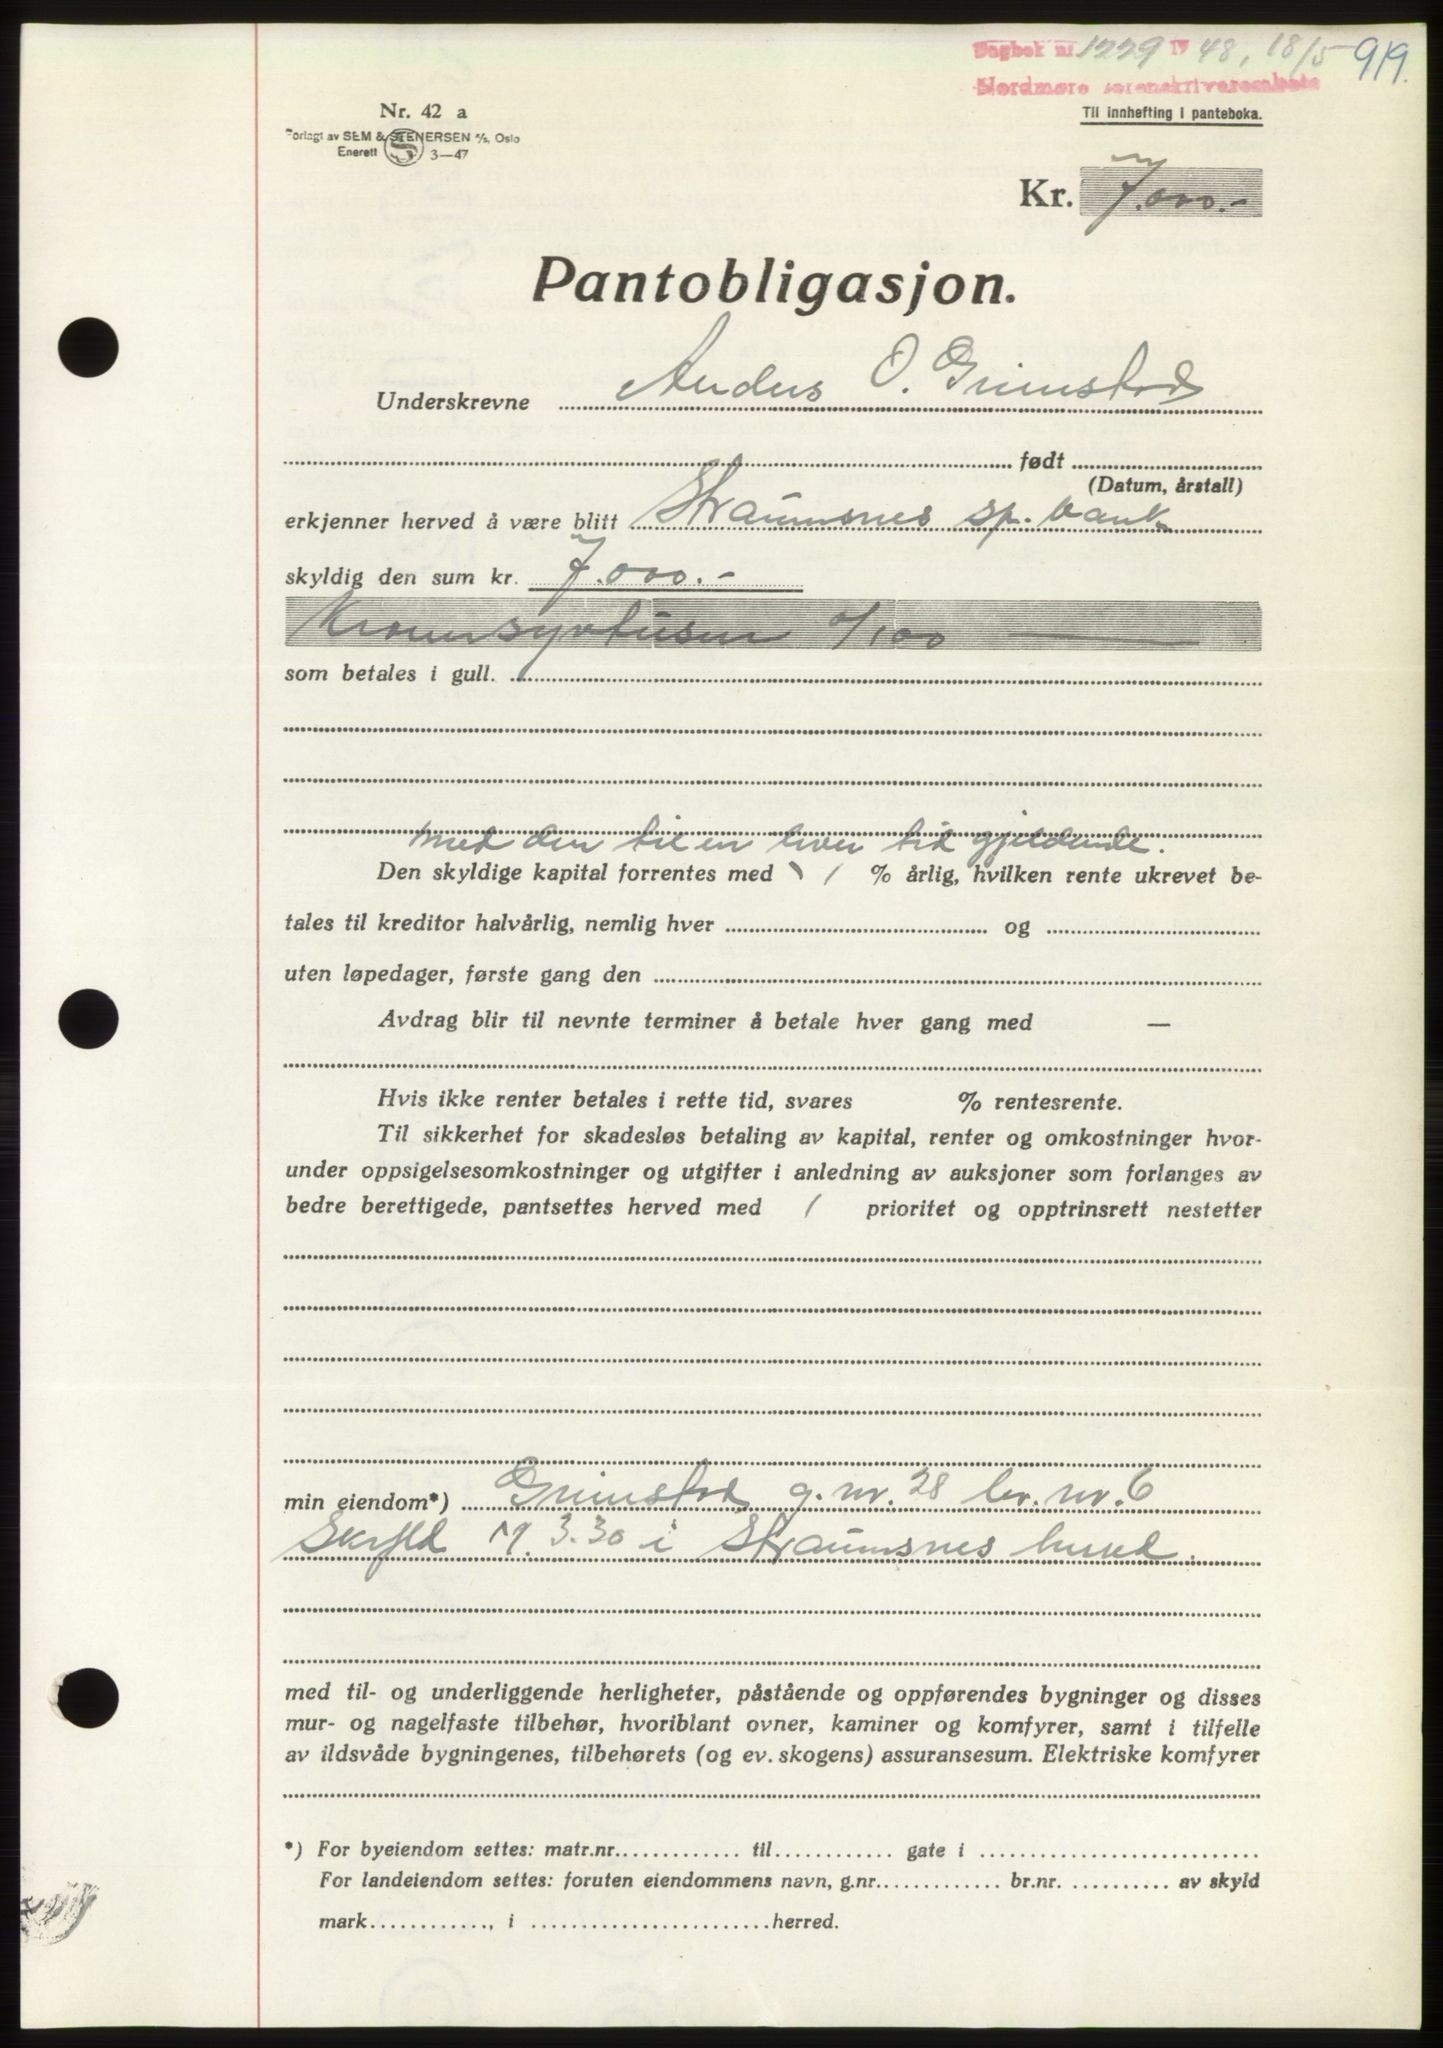 Dagbok nr. 1229 19 48, 18/5 919.
Nordmøre sorenskriverembete
Nr. 42 a
Til innhefting i panteboka.
Forlagt av SEM & STENERSEN A/S, Oslo
Enerett 3—47
Kr. 7.000.-
Pantobligasjon.
Underskrevne Anders O. Grimstad
født
(Datum, årstall)
erkjenner herved å være blitt Straumsnes sp.bank
skyldig den sum kr. 7.000.-
Kronersyvtusen 0/100
som betales i gull.
med den til en hver tid gjeldende.
Den skyldige kapital forrentes med % årlig, hvilken rente ukrevet be-
tales til kreditor halvårlig, nemlig hver og
uten løpedager, første gang den
Avdrag blir til nevnte terminer å betale hver gang med —
Hvis ikke renter betales i rette tid, svares % rentesrente.
Til sikkerhet for skadesløs betaling av kapital, renter og omkostninger hvor-
under oppsigelsesomkostninger og utgifter i anledning av auksjoner som forlanges av
bedre berettigede, pantsettes herved med 1 prioritet og opptrinsrett nestetter
min eiendom*) Grimstad g.nr. 28 br.nr. 6
Skyld M. 3.30 i Straumsnes herred.
med til- og underliggende herligheter, påstående og oppførendes bygninger og disses
mur- og nagelfaste tilbehør, hvoriblant ovner, kaminer og komfyrer, samt i tilfelle
av ildsvåde bygningenes, tilbehørets (og ev. skogens) assuransesum. Elektriske komfyrer
*) For byeiendom settes: matr.nr. til gate i
For landeiendom settes: foruten eiendommens navn, g.nr. br.nr. av skyld
mark , i herred.